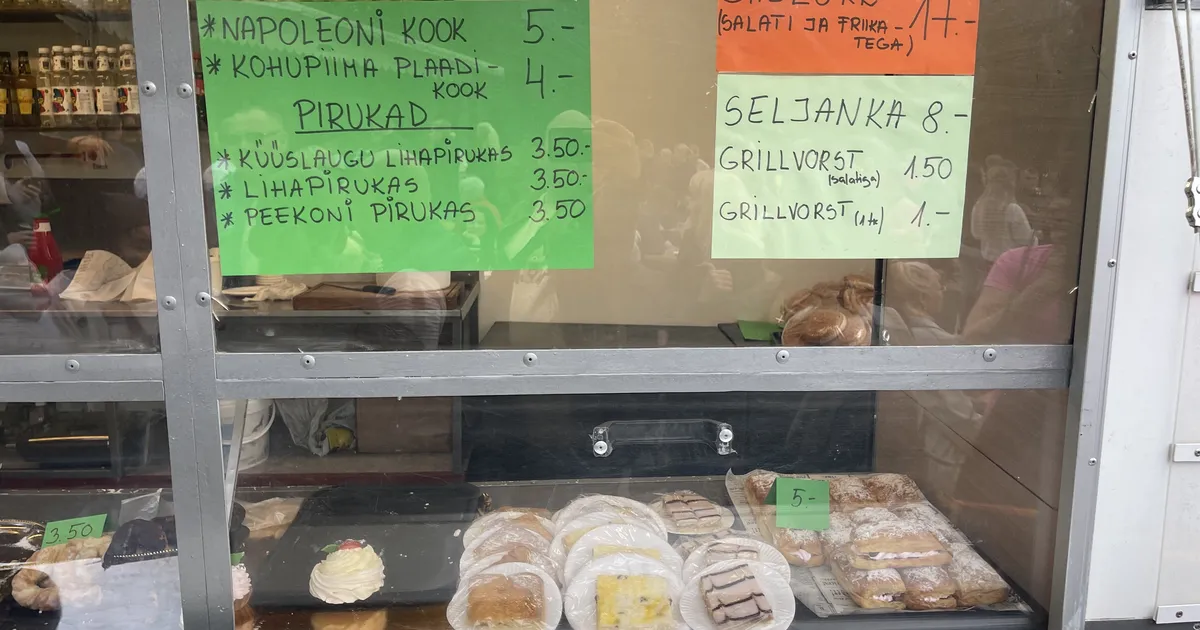 * NAPOLEONI KOOK 5.-
* KOHUPIIMA PLAADI-
KOOK 4.-
PIRUKAD
* KÜÜSLAUGU LIHAPIRUKAS 3.50.-
* LIHAPIRUKAS 3.50.-
* PEEKONI PIRUKAS 3.50
(SALATI JA FRIIKA-
TEGA) 17.-
SELJANKA 8.-
GRILLVORST 1.50
(salatiga)
GRILLVORST (1tk) 1.-
3.50
5.-